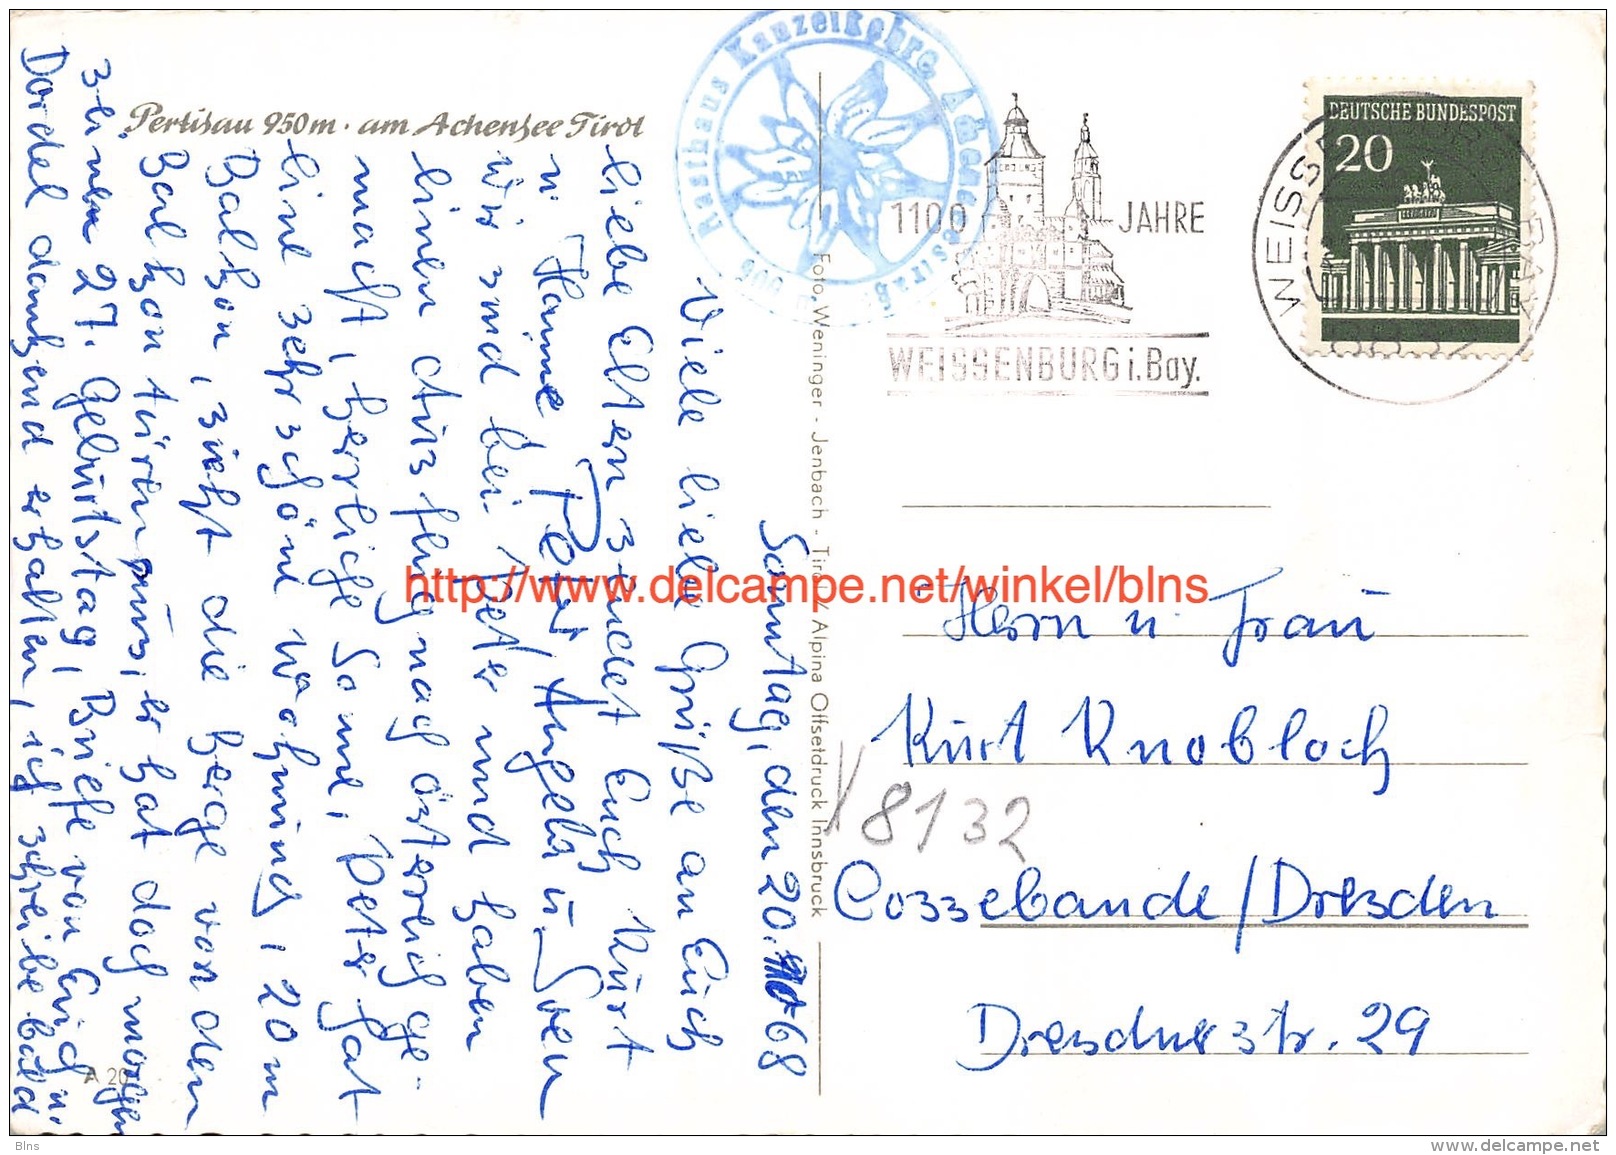 Pertisau 950m · am Achensee Tirol
Rasthaus Kanzelkehre, Achenseestraße
Foto Weninger - Jenbach - Tirol / Alpina Offsetdruck Innsbruck
1100 JAHRE
WEISSENBURG i. Bay.
WEISSENBURG BAY
DEUTSCHE BUNDESPOST
20
Sonntag, den 20. 10 68
Viele liebe Grüße an Euch
liebe Eltern sendet Euch Kurt
u Hanne Peter, Angela u. Sven
Wir sind bei Peter und haben
einen Ausflug nach österreich ge-
macht, herrliche Sonne, Peter hat
eine sehr schöne Wohnung, 20 m
Balkon, sieht die Berge von den
Balkontüren aus, er hat doch morgen
seinen 27. Geburtstag, Briefe von Euch u.
Dordel dankend erhalten, ich schreibe bald
Herrn u. Frau
Kurt Knobloch
X 8132
Cossebaude / Dresden
Dresdnerstr. 29
A 20
http://www.delcampe.net/winkel/blns
Blns
www.delcampe.net